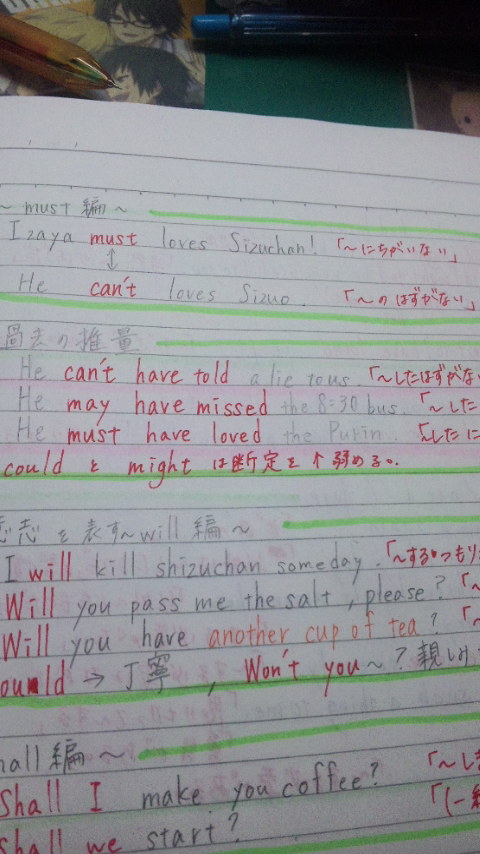 ~ must 編 ~
Izaya must loves Sizuchan! 「~にちがいない」
↕
He can't loves Sizuo. 「~のはずがない」
過去の推量
He can't have told a lie to us. 「~したはずがな
He may have missed the 8:30 bus. 「~した
He must have loved the Purin. 「~したに
could と might は断定を↑弱める。
志を表す~will 編 ~
I will kill shizuchan someday. 「~するつもり
Will you pass me the salt, please? 「~
Will you have another cup of tea? 「~
ould → 丁寧, Won't you~? 親しみ
hall編 ~
Shall I make you coffee? 「~しま
Shall we start? 「(一緒